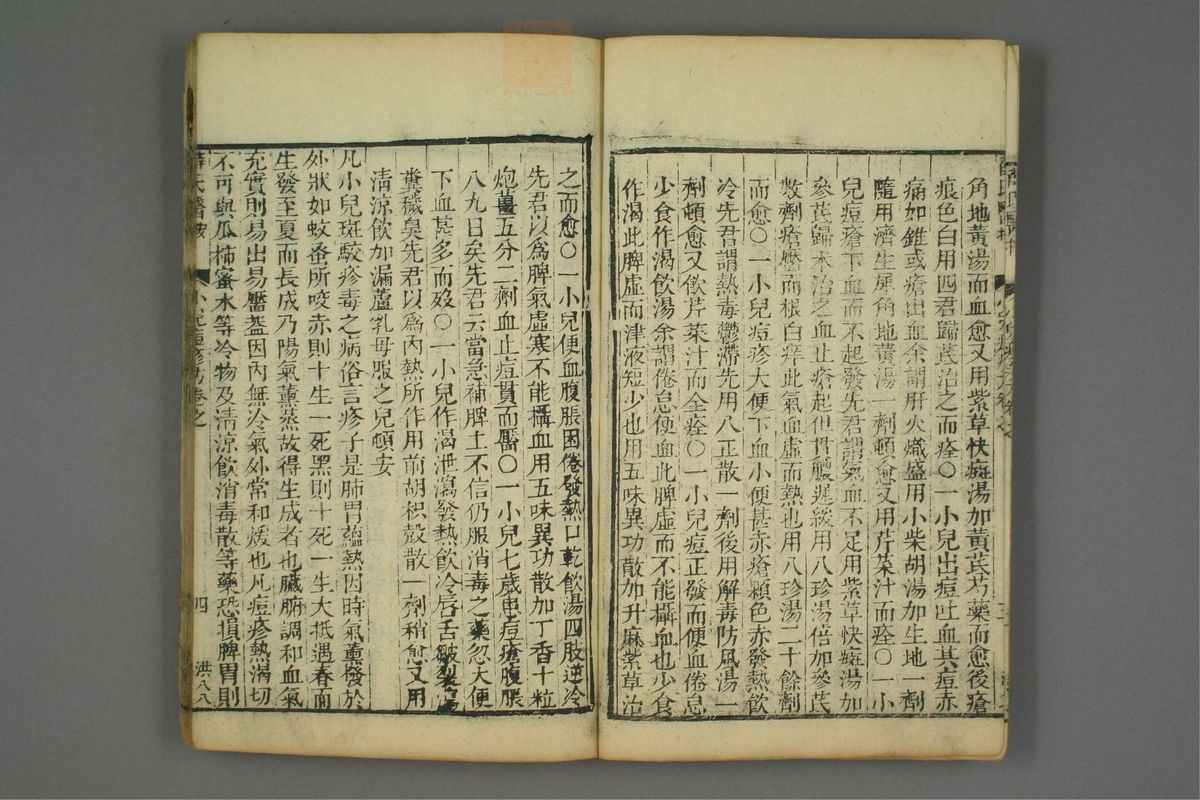 角地黃湯而血愈又用紫草快癍湯加黃芪芍藥而愈後瘡
痕色白用四君歸芪治之而痊○一小兒出痘吐血其痘赤
痛如錐或瘡出血余謂肝火熾盛用小柴胡湯加生地一劑
隨用濟生犀角地黃湯一劑頓愈又用芹菜汁而痊○一小
兒痘瘡下血而不起發先君謂氣血不足用紫草快癍湯加
參芪歸木治之血止瘡起但貫膿遲緩用八珍湯倍加參芪
數劑瘡靨而根白痒此氣血虛而熱也用八珍湯二十餘劑
而愈○一小兒痘疹大便下血小便甚赤瘡顆色赤發熱飲
冷先君謂熱毒鬱滯先用八正散一劑後用解毒防風湯一
劑頓愈又飲芹菜汁而全痊○一小兒痘正發而便血倦怠
少食作渴飲湯余謂倦怠便血此脾虛而不能攝血也少食
作渴此脾虛而津液短少也用五味異功散加升麻紫草治
之而愈○一小兒便血腹脹困倦發熱口乾飲湯四肢逆冷
先君以為脾氣虛寒不能攝血用五味異功散加丁香十粒
炮薑五分二劑血止痘貫而靨○一小兒七歲患痘瘡腹脹
八九日矣先君云當急補脾土不信仍服消毒之藥忽大便
下血甚多而歿○一小兒作渴泄瀉發熱飲冷唇舌皺裂
糞穢臭先君以為內熱所作用前胡枳殼散一劑稍愈又用
清涼飲加漏蘆乳母服之兒頓安
凡小兒斑駁疹毒之病俗言疹子是肺胃蘊熱因時氣薰發於
外狀如蚊蚤所咬赤則十生一死黑則十死一生大抵遇春而
生發至夏而長成乃陽氣薰蒸故得生成者也臟腑調和血氣
充實則易出易靨蓋因內無冷氣外常和煖也凡痘疹熱渴切
不可與瓜柿蜜水等冷物及清涼飲消毒散等藥恐損脾胃則
薛氏醫按 小兒痘疹方卷之 四 洪八八